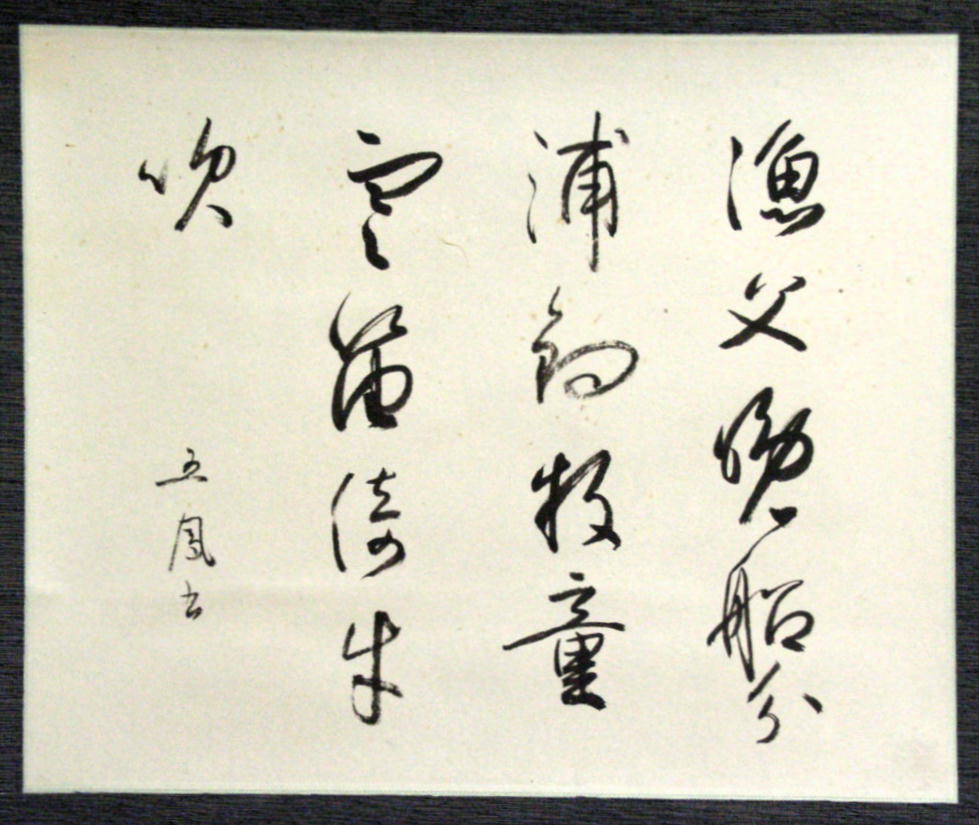 漁父晩船分
浦釣牧童
寒笛倚牛
吹
五鳳書